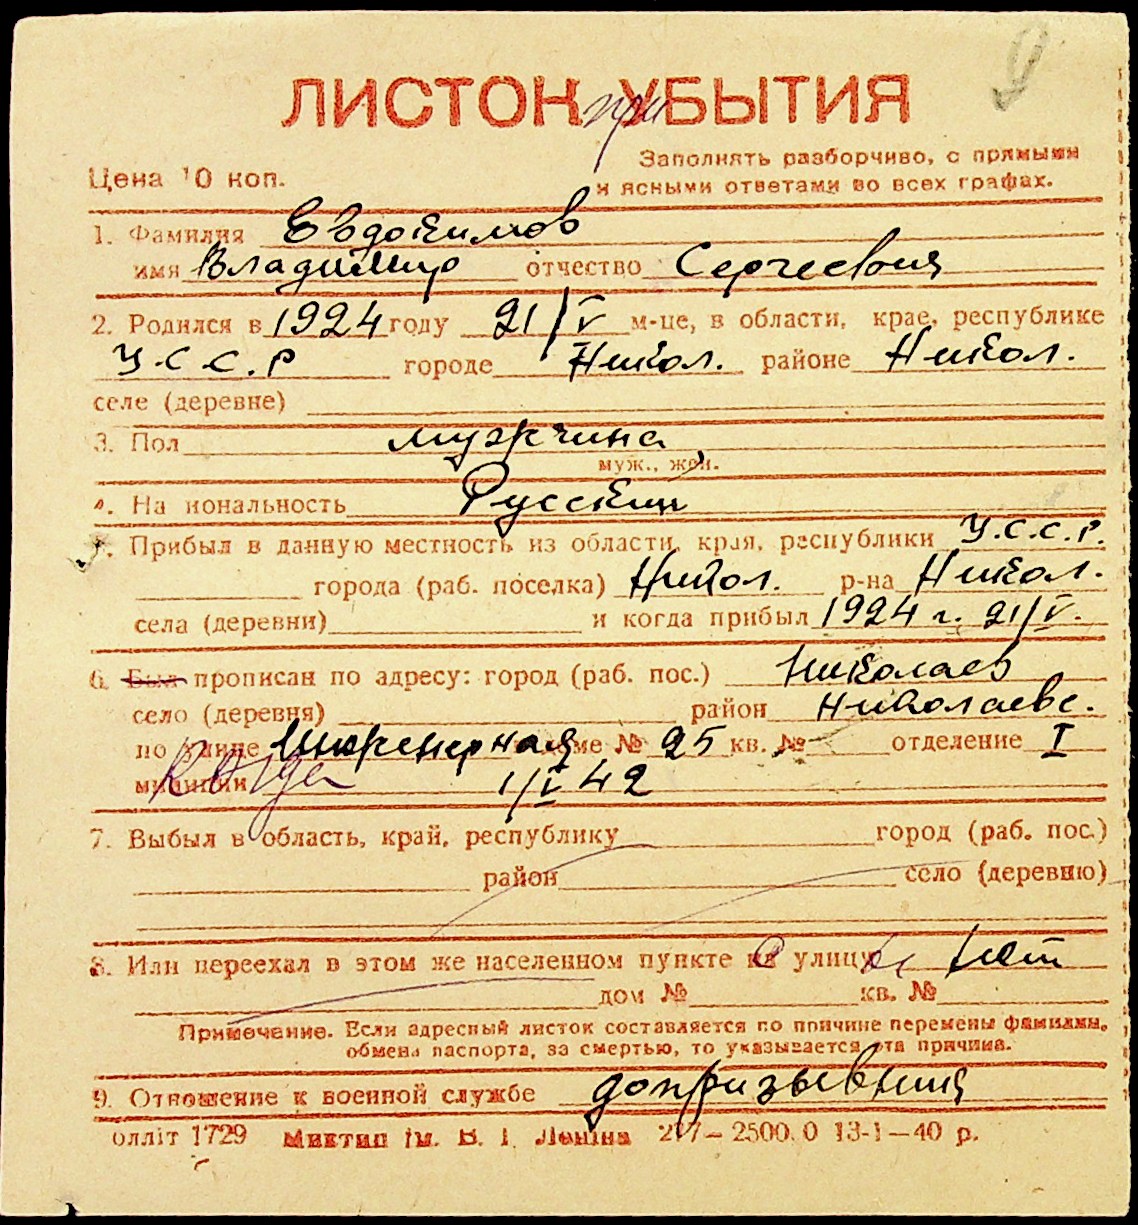 ЛИСТОК при УБЫТИЯ
Цена 10 коп.
Заполнять разборчиво, с прямыми
и ясными ответами во всех графах.
1. Фамилия Евдокимов
имя Владимир отчество Сергеевич
2. Родился в 1924 году 21/V м-це, в области, крае, республике
У.С.С.Р городе Никол. районе Никол.
селе (деревне)
3. Пол мужчина
муж., жен.
4. На иональность Русский
5. Прибыл в данную местность из области, края, республики У.С.С.Р.
города (раб. поселка) Никол. р-на Никол.
села (деревни) и когда прибыл 1924 г. 21/V.
6. Был прописан по адресу: город (раб. пос.) Николаев
село (деревня) район Николаевс.
по улице Инженерная доме № 25 кв. № отделение I
милиции Когда 1/V 42
7. Выбыл в область, край, республику город (раб. пос.)
район село (деревню)
8. Или переехал в этом же населенном пункте на улицу
дом № кв. №
Примечание. Если адресный листок составляется по причине перемены фамилии,
обмена паспорта, за смертью, то указывается эта причина.
9. Отношение к военной службе допризывник
олліт 1729 Миктип ім. В. І. Леніна 13-1—40 р.